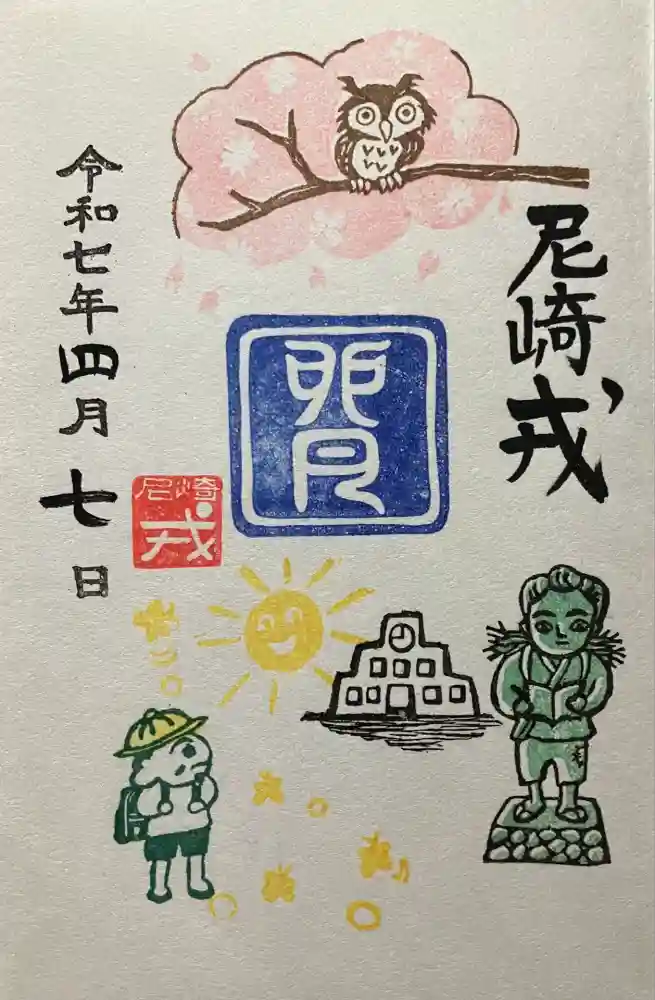 尼崎戎
卯月
尼崎
戎
令和七年四月七日